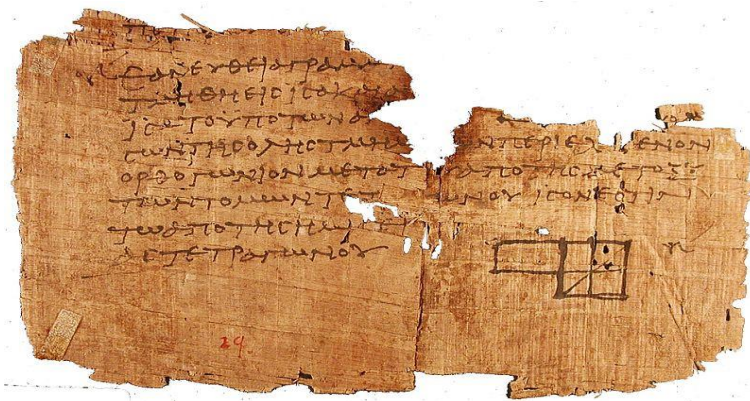 ΕΑΝΕΥΘΕΙΑΓΡΑΜ
ΤΜΗΘΗΕΙϹΙϹΑΚΑΙΑ
ΙϹΑΤΟΥΠΟΤΩΝΑ
ΤΩΝΤΗϹΟΛΗϹΤΜΗΜ ΩΝΠΕΡΙΕΧΟΜΕΝΟΝ
ΟΡΘΟΓΩΝΙΟΝΜΕΤΑΤΟΥΑΠΟΤΗϹΜΕΤΟΞΥ
ΤΩΝΤΟΜΩΝΤΕΤ ΓΩΝΟΥΙϹΟΝΕϹΤΙΝ
ΤΩΑΠΟΤΗϹΗΜΙϹΕΙ
ΑϹΤΕΤΡΑΓΩΝΟΥ
29